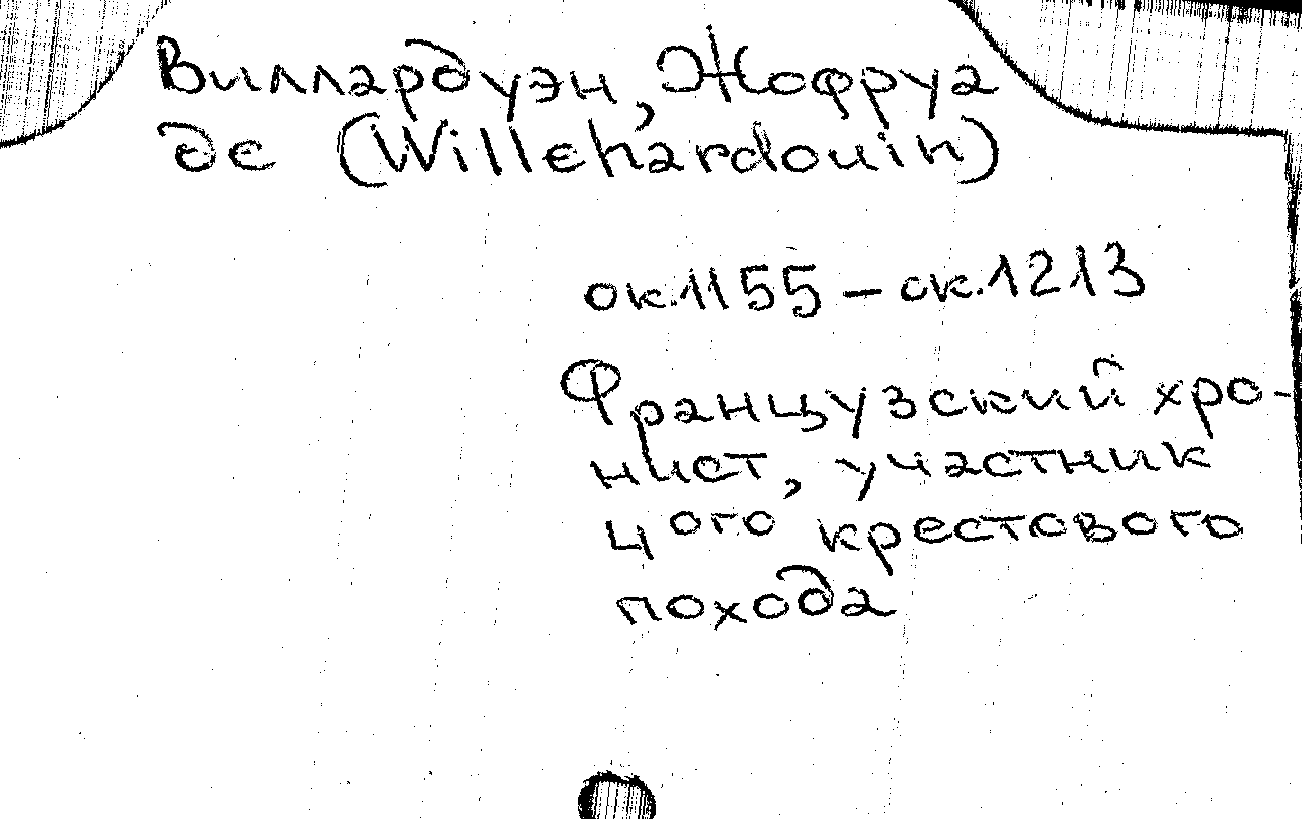 Виллардуэн, Жофруа
де (Willehardouin)
ок.1155 – ок.1213
Французский хро-
нист, участник
4ого крестового
похода